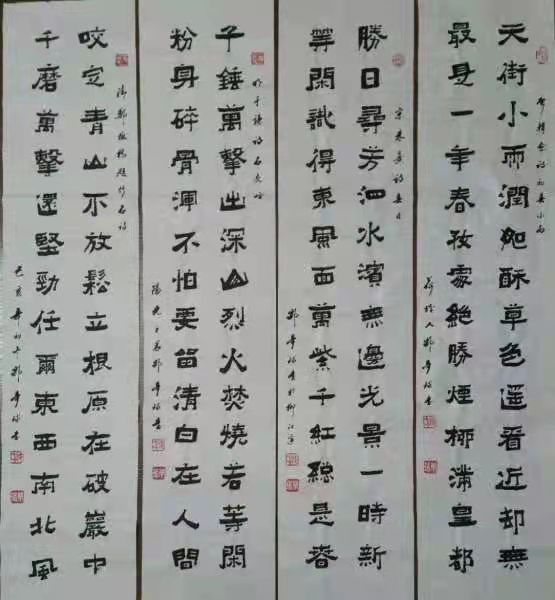 天街小雨潤如酥草色遥看近却無
唐韓愈詩初春小雨
最是一年春好處絕勝煙柳滿皇都
勝日尋芳泗水濱無邊光景一時新
宋朱熹詩春日
等閑識得東風面萬紫千紅總是春
千錘萬擊出深山烈火焚燒若等閑
明于謙詩石灰吟
粉身碎骨渾不怕要留清白在人間
咬定青山不放鬆立根原在破巖中
清鄭板橋題竹石詩
千磨萬擊還堅勁任爾東西南北風